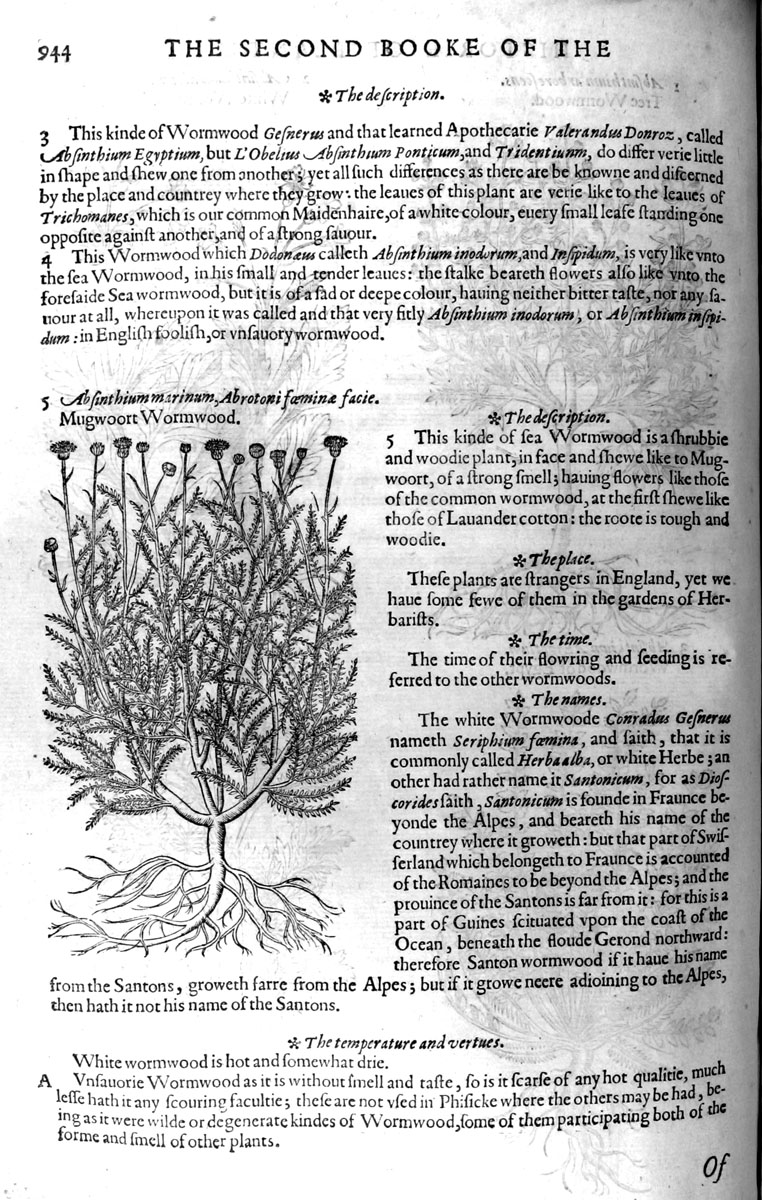 944 THE SECOND BOOKE OF THE
✻ The deſcription.
3 This kinde of Wormwood Geſnerus and that learned Apothecarie Valerandus Donroz, called
Abſinthium Egyptium, but L'Obelius Abſinthium Ponticum, and Tridentinum, do differ verie little
in ſhape and ſhew one from another; yet all ſuch differences as there are be knowne and diſcerned
by the place and countrey where they grow: the leaues of this plant are verie like to the leaues of
Trichomanes, which is our common Maidenhaire, of a white colour, euery ſmall leafe ſtanding one
oppoſite againſt another, and of a ſtrong ſauour.
4 This Wormwood which Dodonæus calleth Abſinthium inodorum, and Inſipidum, is very like vnto
the ſea Wormwood, in his ſmall and tender leaues: the ſtalke beareth flowers alſo like vnto the
foreſaide Sea wormwood, but it is of a ſad or deepe colour, hauing neither bitter taſte, nor any ſa-
uour at all, whereupon it was called and that very fitly Abſinthium inodorum, or Abſinthium inſipi-
dum: in Engliſh fooliſh, or vnſauory wormwood.
5 Abſinthium marinum, Abrotoni fœminæ facie.
Mugwoort Wormwood.
✻ The deſcription.
5 This kinde of ſea Wormwood is a ſhrubbie
and woodie plant, in face and ſhewe like to Mug-
woort, of a ſtrong ſmell; hauing flowers like thoſe
of the common wormwood, at the firſt ſhewe like
thoſe of Lauander cotton: the roote is tough and
woodie.
✻ The place.
Theſe plants are ſtrangers in England, yet we
haue ſome fewe of them in the gardens of Her-
bariſts.
✻ The time.
The time of their flowring and ſeeding is re-
ferred to the other wormwoods.
✻ The names.
The white Wormwoode Conradus Geſnerus
nameth Seriphium fœmina, and ſaith, that it is
commonly called Herba alba, or white Herbe; an
other had rather name it Santonicum, for as Dioſ-
corides ſaith, Santonicum is founde in Fraunce be-
yonde the Alpes, and beareth his name of the
countrey where it groweth: but that part of Swiſ-
ſerland which belongeth to Fraunce is accounted
of the Romaines to be beyond the Alpes; and the
prouince of the Santons is far from it: for this is a
part of Guines ſcituated vpon the coaſt of the
Ocean, beneath the floude Gerond northward:
therefore Santon wormwood if it haue his name
from the Santons, groweth farre from the Alpes; but if it growe neere adioining to the Alpes,
then hath it not his name of the Santons.
✻ The temperature and vertues.
White wormwood is hot and ſomewhat drie.
A Vnſauorie Wormwood as it is without ſmell and taſte, ſo is it ſcarſe of any hot qualitie, much
leſſe hath it any ſcouring facultie; theſe are not vſed in Phiſicke where the others may be had, be-
ing as it were wilde or degenerate kindes of Wormwood, ſome of them participating both of the
forme and ſmell of other plants.
Of